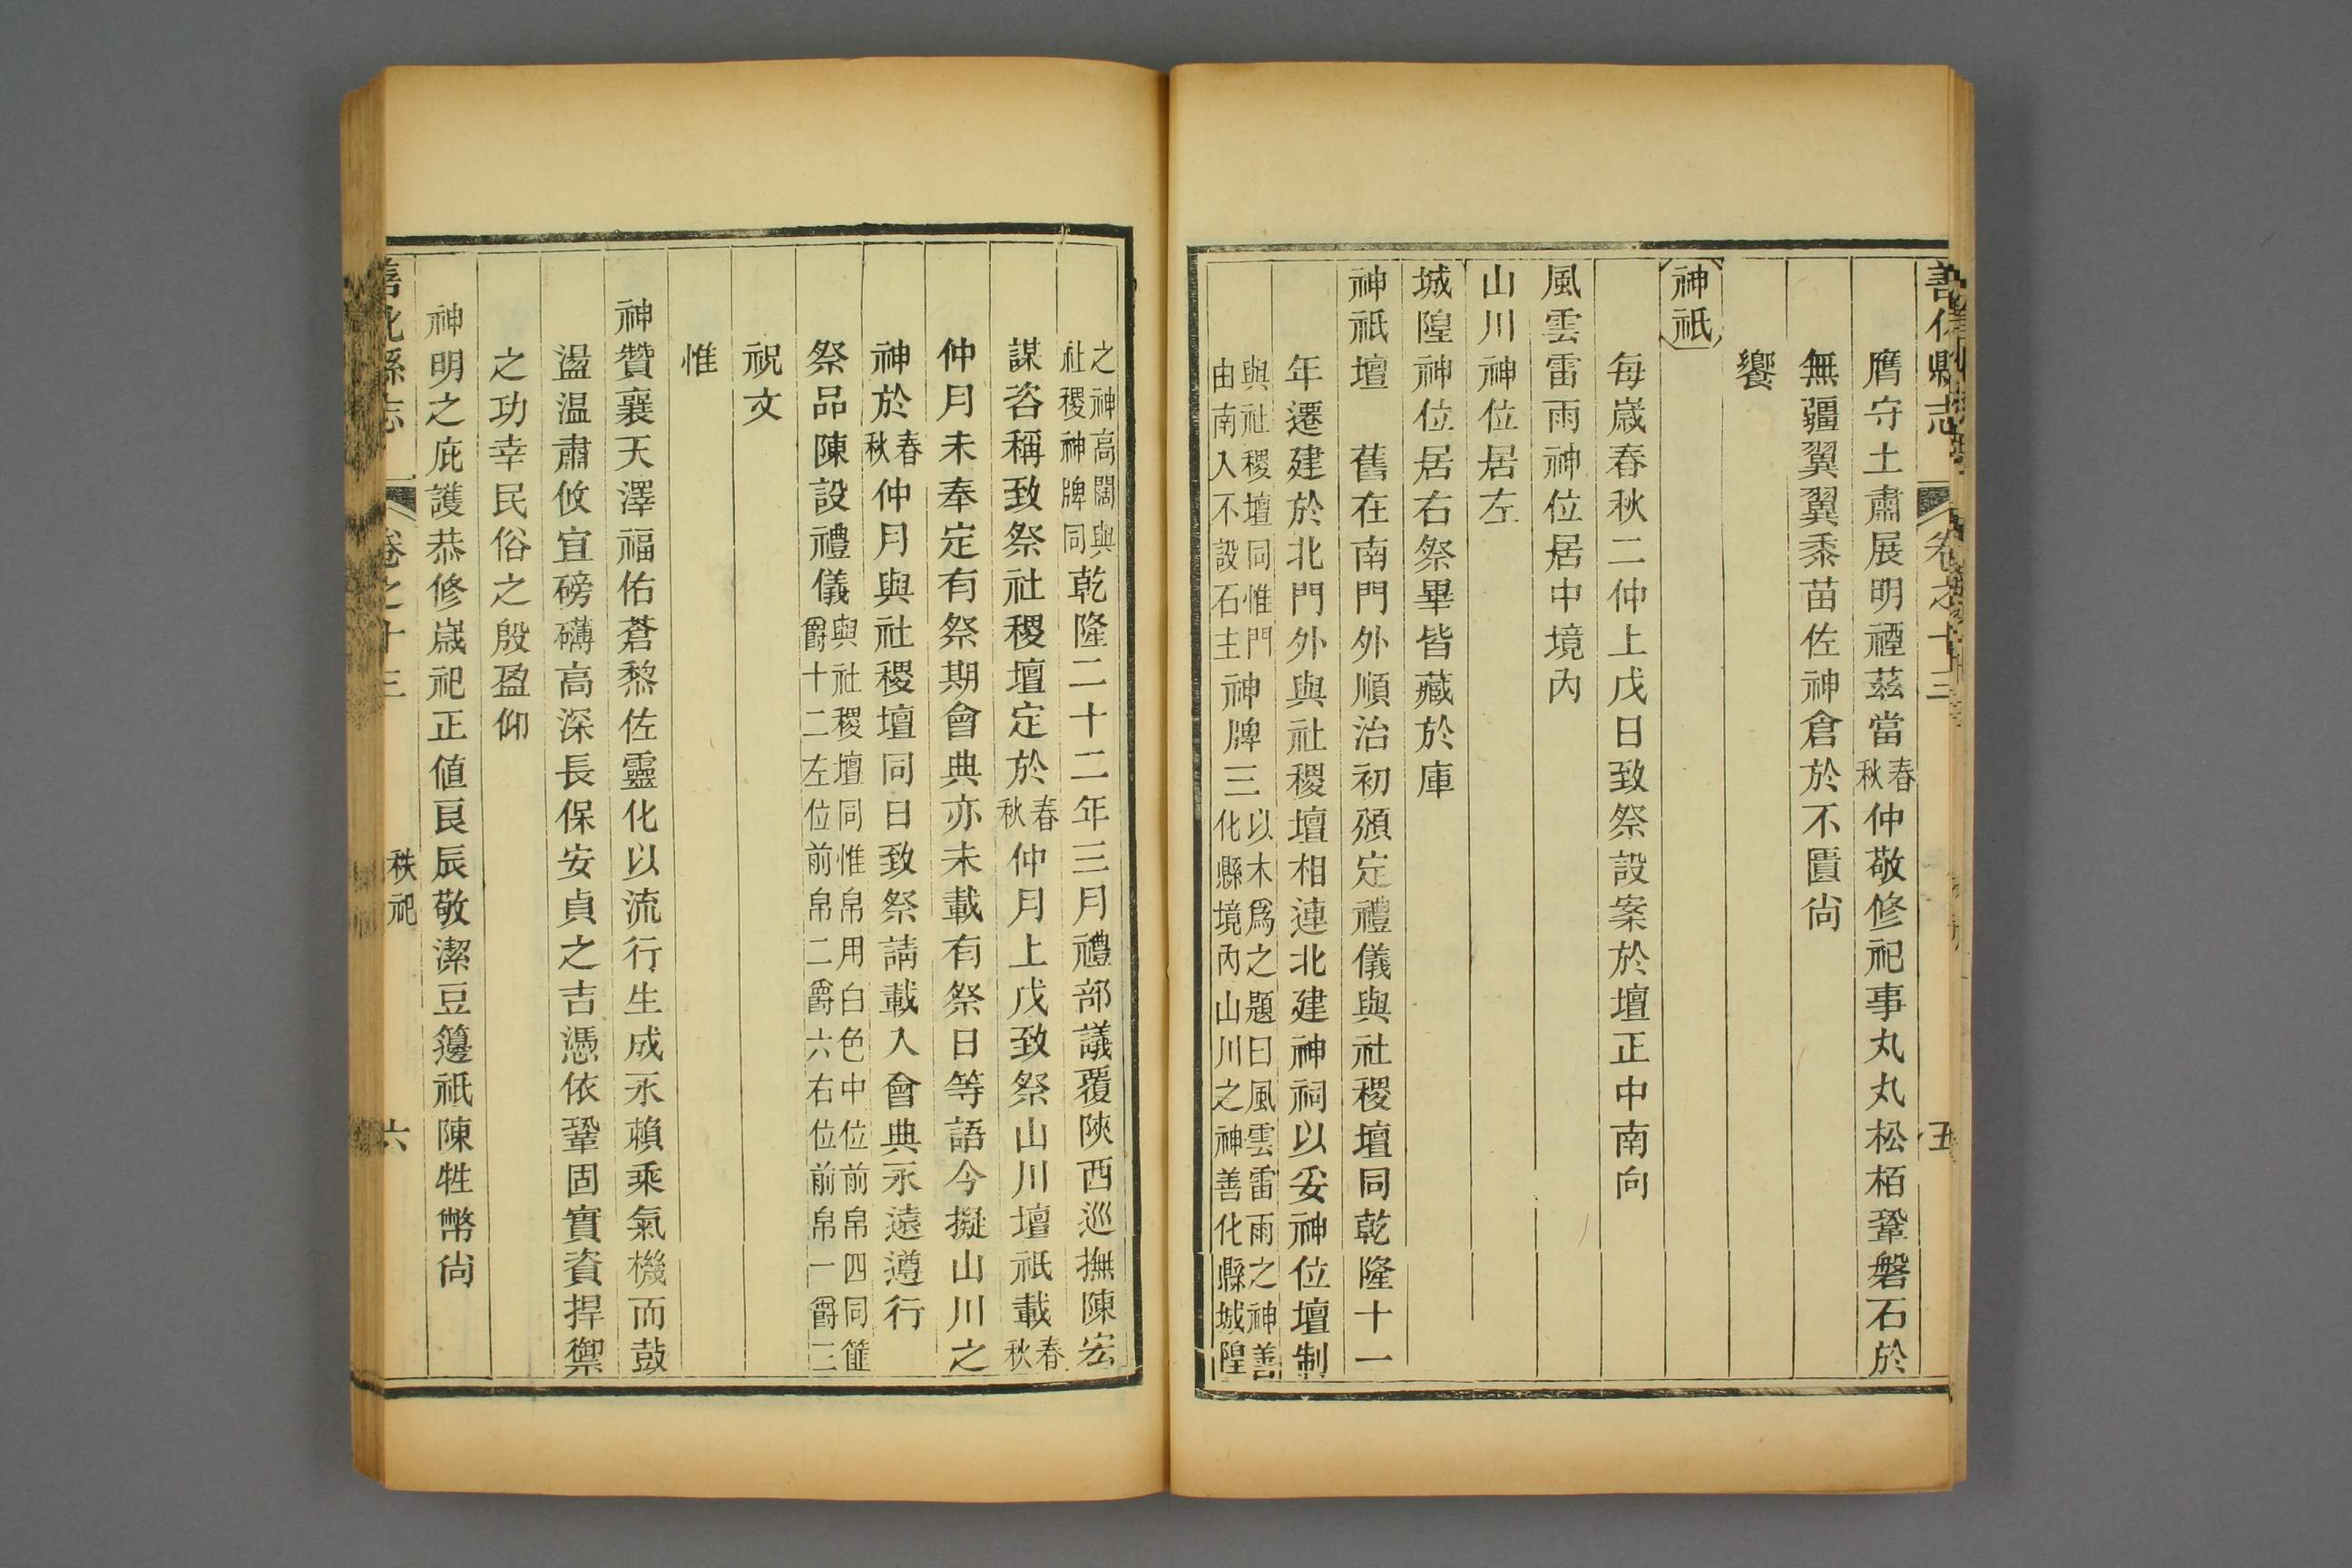 善化縣志
卷之十三
五
膺守土肅展明禋茲當春秋仲敬修祀事丸丸松栢鞏磐石於
無疆翼翼黍苗佐神倉於不匱尙
饗
神祇
每歲春秋二仲上戊日致祭設案於壇正中南向
風雲雷雨神位居中境內
山川神位居左
城隍神位居右祭畢皆藏於庫
神祇壇 舊在南門外順治初頒定禮儀與社稷壇同乾隆十一
年遷建於北門外與社稷壇相連北建神祠以妥神位壇制
與社稷壇同惟門由南入不設石主神牌三以木爲之題曰風雲雷雨之神善化縣境內山川之神善化縣城隍
之神高闊與社稷神牌同乾隆二十二年三月禮部議覆陝西巡撫陳宏
謀咨稱致祭社稷壇定於春秋仲月上戊致祭山川壇祇載春秋
仲月未奉定有祭期會典亦未載有祭日等語今擬山川之
神於春秋仲月與社稷壇同日致祭請載入會典永遠遵行
祭品陳設禮儀與社稷壇同惟帛用白色中位前帛四同篚爵十二左位前帛二爵六右位前帛一爵三
祝文
惟
神贊襄天澤福佑蒼黎佐靈化以流行生成永賴乘氣機而鼓
盪温肅攸宜磅礴高深長保安貞之吉憑依鞏固實資捍禦
之功幸民俗之殷盈仰
神明之庇護恭修歲祀正值良辰敬潔豆籩祇陳牲幣尙
善化縣志
卷之十三
秩祀
六